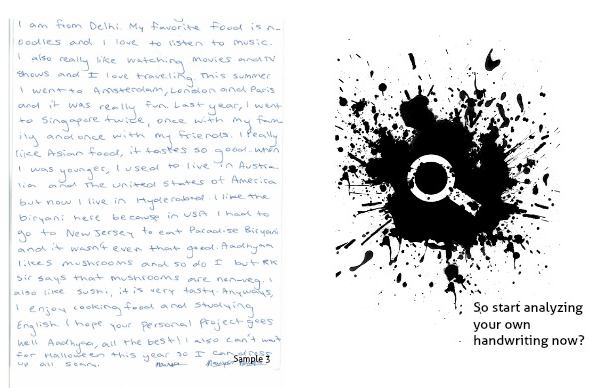 I am from Delhi. My favorite food is n-
oodles and I love to listen to music.
I also really like watching movies and TV
shows and I love traveling. This summer
I went to Amsterdam, London and Paris
and it was really fun. Last year, I went
to Singapore twice, once with my fam
ily and once with my friends. I really
like Asian food, it tastes so good. When
I was younger, I used to live in Austra
lia and the United States of America
but now I live in Hyderabad. I like the
biryani here because in USA I had to
go to New Jersey to eat Paradise Biryani
and it wasn't even that good. Aadhyaa
likes mushrooms and so do I but RK
sir says that mushrooms are nonveg. I
also like sushi, it is very tasty. Anyways,
I enjoy cooking food and studying
English. I hope your personal project goes
well Aadhyaa, all the best! I also can't wait
for Halloween this year so I can dress
up all scary.
Sample 3
So start analyzing
your own
handwriting now?